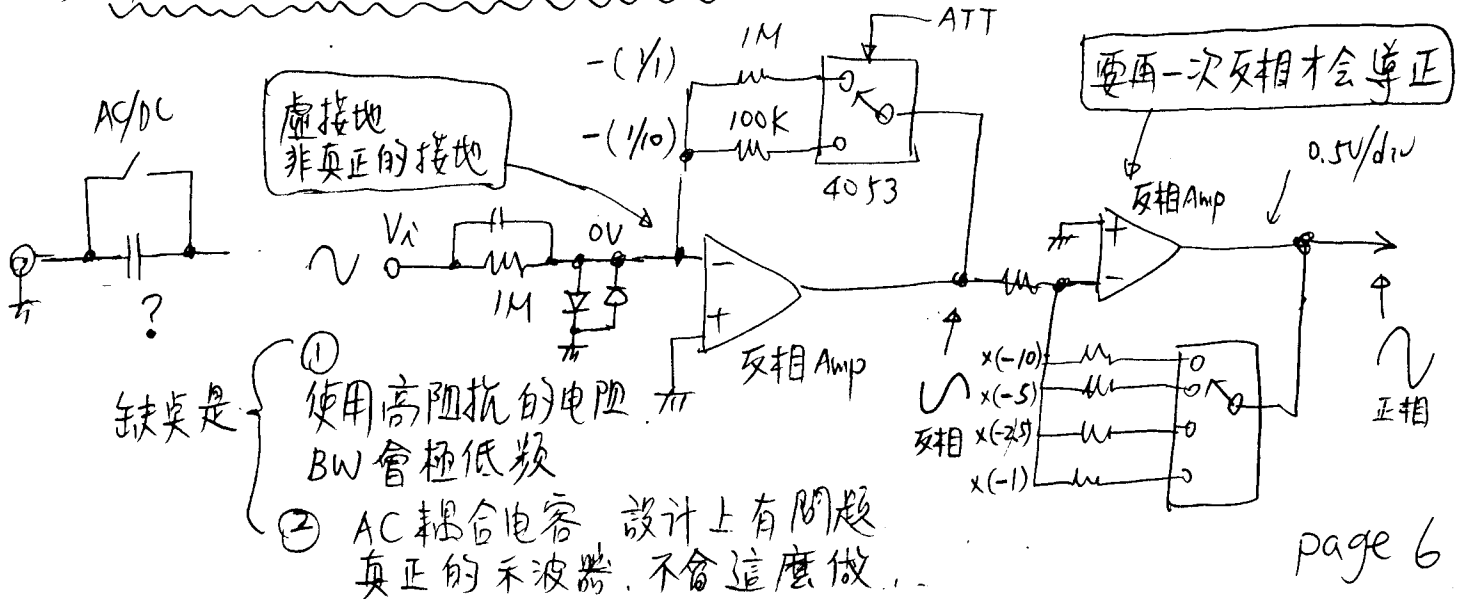 AC/DC
?
虛接地
非真正的接地
Vi
1M
0V
-(1/1)
-(1/10)
1M
100K
ATT
4053
反相 Amp
要再一次反相才会導正
反相 Amp
0.5V/div
反相
x(-10)
x(-5)
x(-2.5)
x(-1)
正相
缺点是
① 使用高阻抗的电阻
BW 會極低频
② AC 耦合电容 設计上有問題
真正的示波器.不會這麼做...
page 6